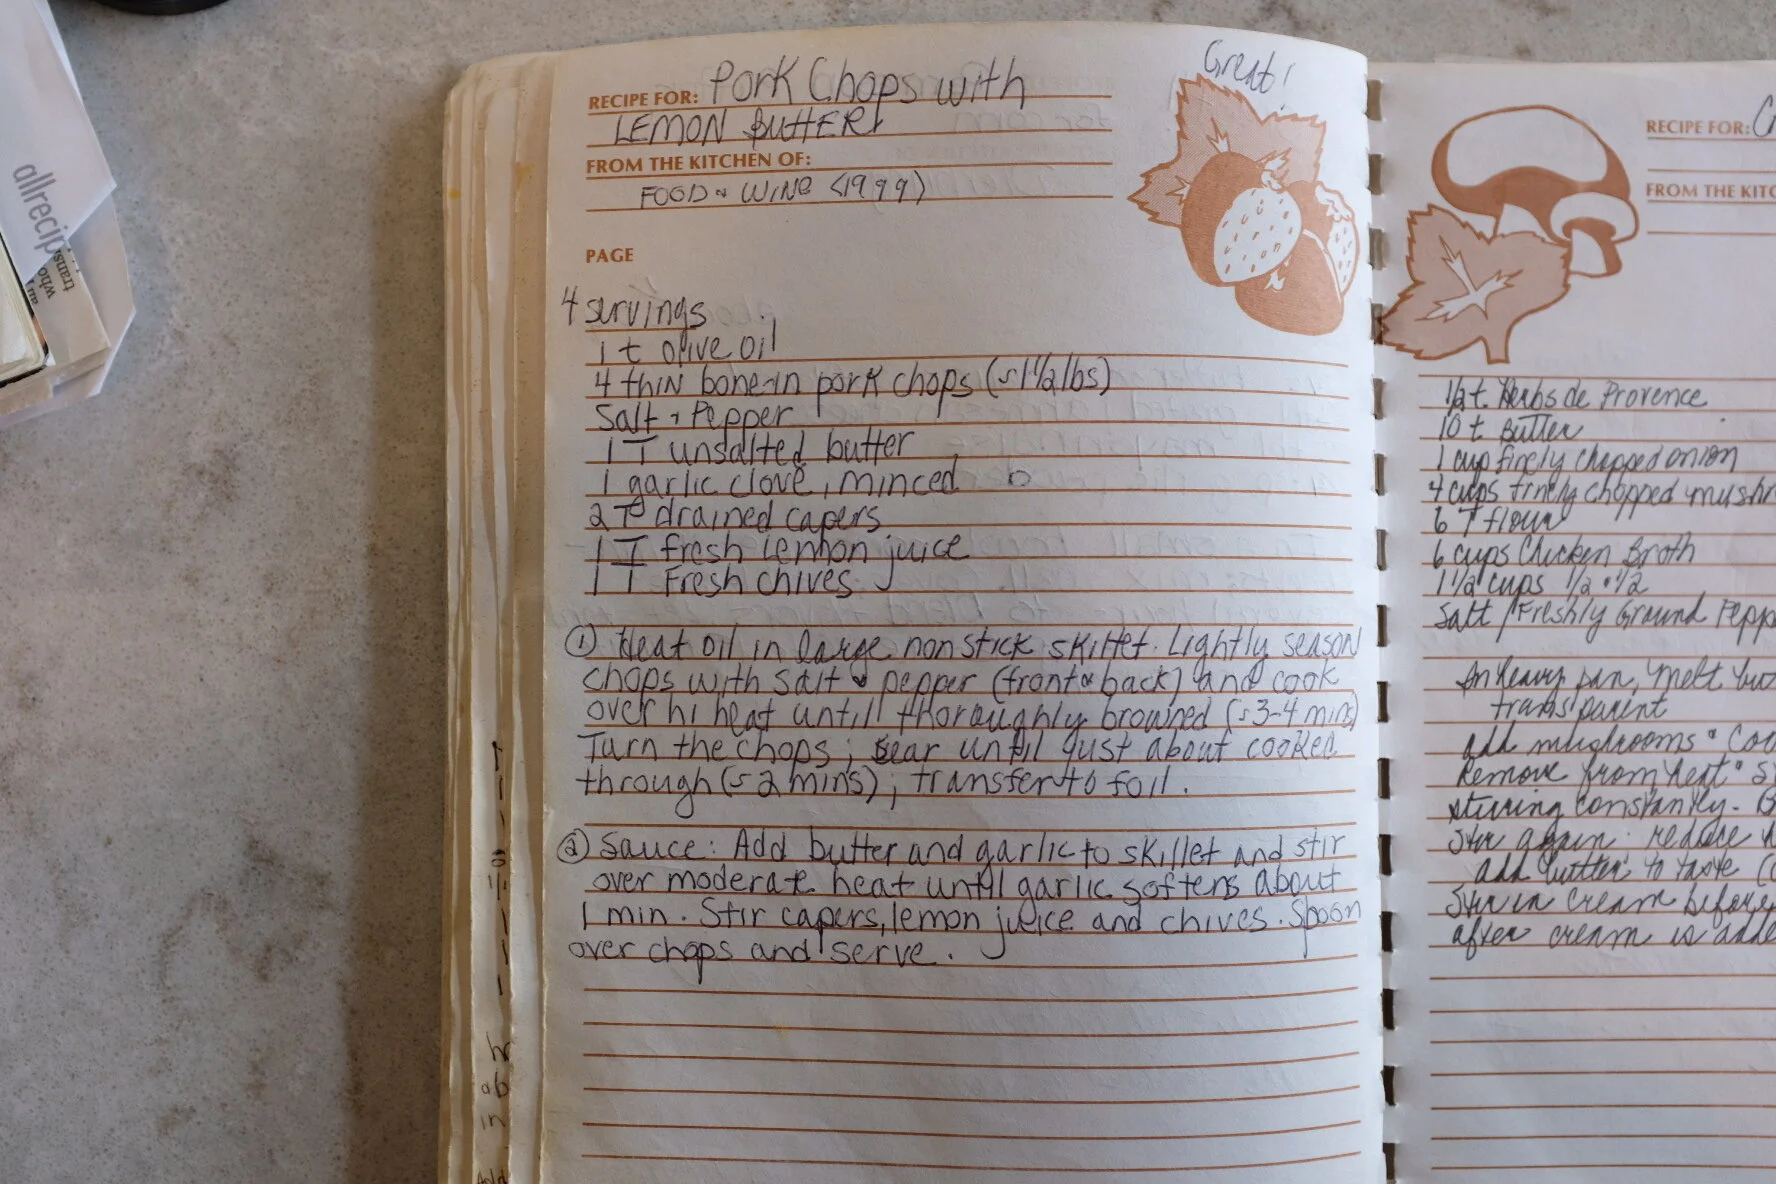 Great!
RECIPE FOR: Pork Chops with
LEMON BUTTER
FROM THE KITCHEN OF:
FOOD & WINE (1999)
PAGE
4 servings
1 t olive oil
4 thin bone-in pork chops (≈ 1 1/2 lbs)
Salt & Pepper
1 T unsalted butter
1 garlic clove, minced
2 T drained capers
1 T fresh lemon juice
1 T Fresh chives
① Heat oil in large nonstick skillet. Lightly season
chops with salt & pepper (front & back) and cook
over hi heat until thoroughly browned (≈ 3-4 mins)
Turn the chops; sear until just about cooked
through (≈ 2 mins); transfer to foil.
② Sauce: Add butter and garlic to skillet and stir
over moderate heat until garlic softens about
1 min. Stir capers, lemon juice and chives. Spoon
over chops and serve.
RECIPE FOR:
FROM THE KITC
1/2 t. Herbs de Provence
10 t butter
1 cup finely chopped onion
4 cups finely chopped mushr
6 T flour
6 cups Chicken Broth
1 1/2 cups 1/2 & 1/2
Salt / Freshly Ground Peppe
In heavy pan, melt
transparent
add mushrooms
Remove from heat
stirring constantly.
Stir again. reduce
add butter to taste
Stir in cream before
after cream is adde
allrecip
trans
who